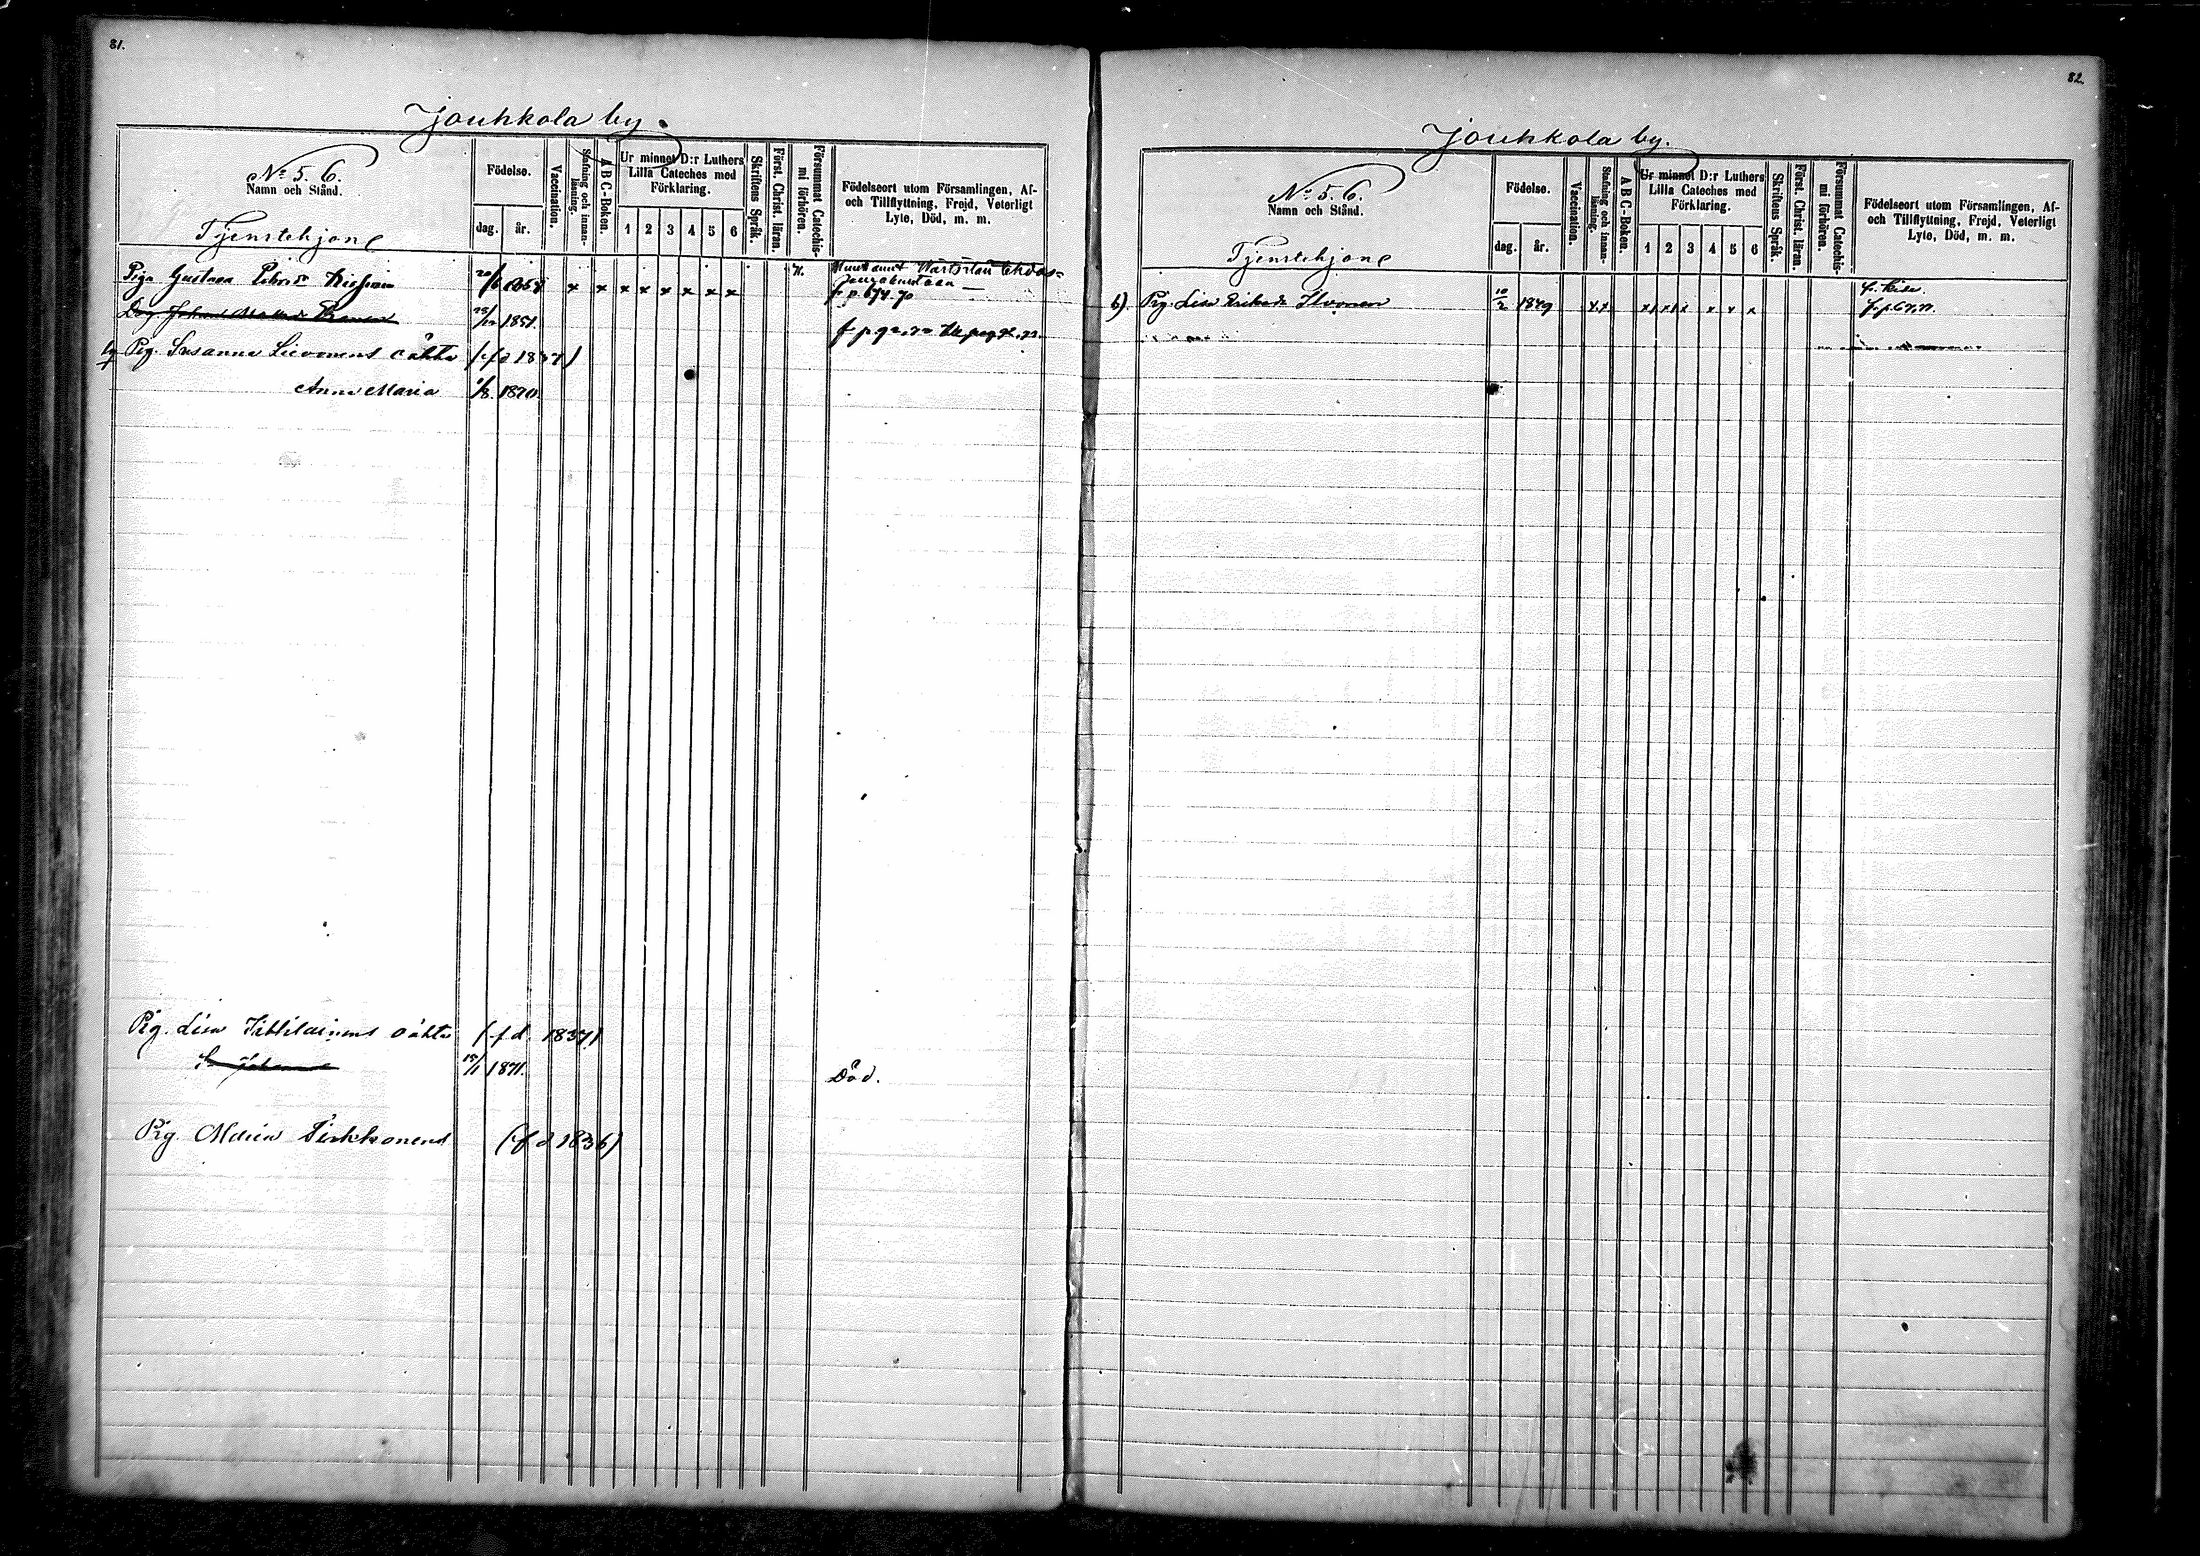 81.
Jouhkola by.
No 5. 6.
Namn och Stånd.
Tjenstehjone
Födelse.
dag. år.
Vaccination.
Stafning och innanläsning.
A B C-Boken.
Ur minnet D:r Luthers
Lilla Cateches med
Förklaring.
1 2 3 4 5 6
Skriftens Språk.
Först. Christ. läran.
Försummat Catechismi förhören.
Födelseort utom Församlingen, Af-
och Tillflyttning, Frejd, Veterligt
Lyte, Död, m. m.
Piga Gustava 20/6 x x x x x x x x
f. p. 674. 70
1851.
Pig. Susanna Sievonens oäkta (f d 1837)
Anna Maria 1/8. 1870.
Pig. Lisa oäkta (f d. 1837)
15/1 1871. Död.
Pig. Maria Tirkkonens (f d 1836)
82.
Jouhkola by.
No 5. 6.
Namn och Stånd.
Tjenstehjone
Födelse.
dag. år.
Vaccination.
Stafning och innanläsning.
A B C-Boken.
Ur minnet D:r Luthers
Lilla Cateches med
Förklaring.
1 2 3 4 5 6
Skriftens Språk.
Först. Christ. läran.
Försummat Catechismi förhören.
Födelseort utom Församlingen, Af-
och Tillflyttning, Frejd, Veterligt
Lyte, Död, m. m.
6). Pig. Lisa Ilvonen 10/2 1849 x x x x x x x x